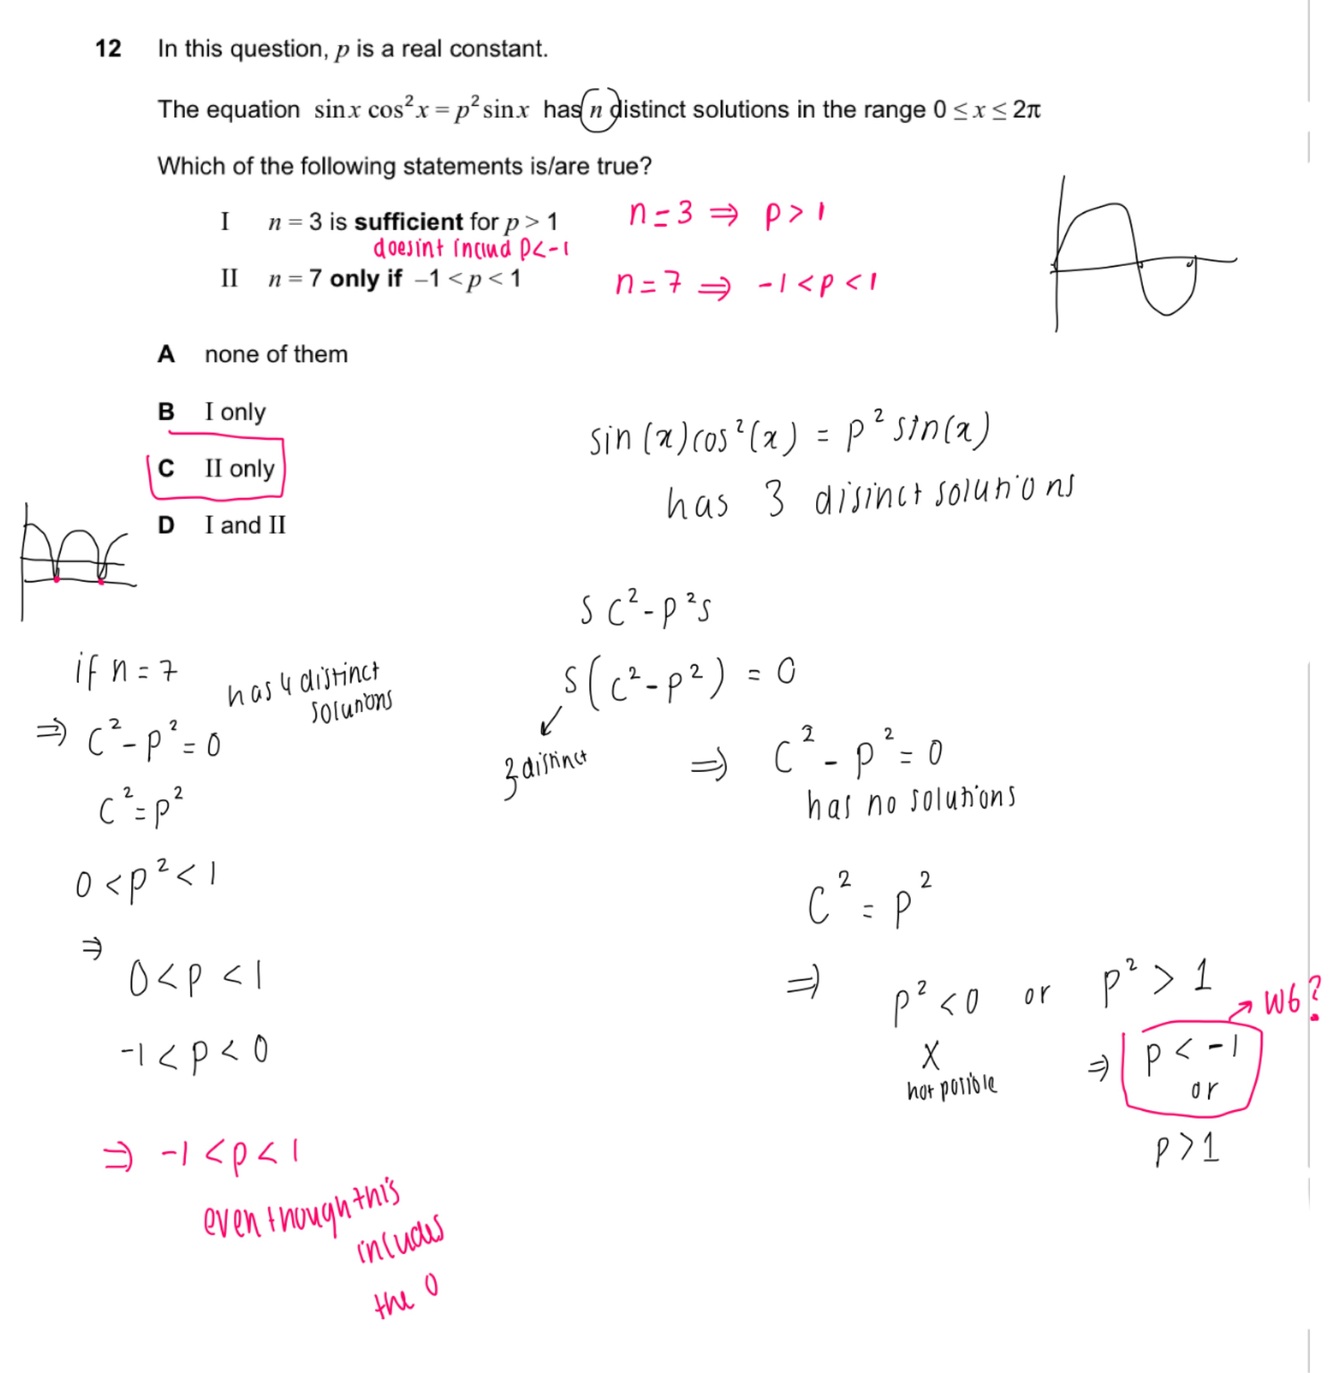 12 In this question, p is a real constant.
The equation sin x cos²x = p² sin x has n distinct solutions in the range 0 ≤ x ≤ 2π
Which of the following statements is/are true?
I n = 3 is sufficient for p > 1
n = 3 ⇒ p > 1
doesint includ p<-1
II n = 7 only if −1 < p < 1
n = 7 ⇒ -1 < p < 1
A none of them
B I only
C II only
D I and II
sin(x)cos²(x) = p² sin(x)
has 3 disinct solutions
S C² - p²S
S(C² - p²) = 0
3 distinct
⇒ C² - p² = 0
has no solutions
C² = p²
⇒ p² < 0 or p² > 1
X
not posible
⇒ p < -1
or
p > 1
→ W6?
if n = 7
has 4 distinct
solutions
⇒ C² - p² = 0
C² = p²
0 < p² < 1
⇒
0 < p < 1
-1 < p < 0
⇒ -1 < p < 1
even though this
includes
the 0